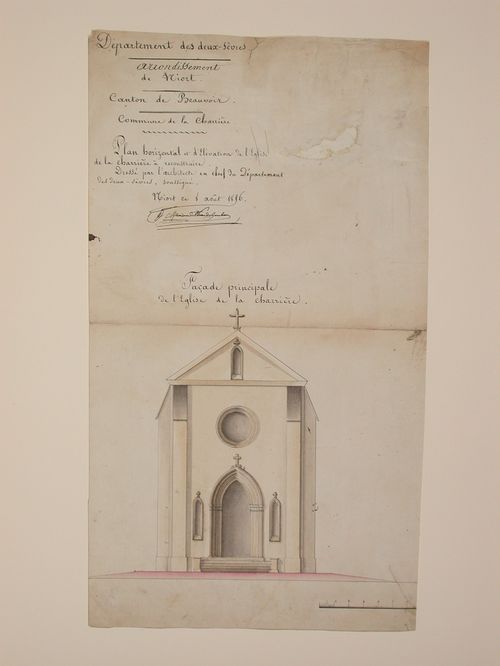 Département des deux-Sèvres
arrondissement
de Niort.
Canton de Beauvoir.
Commune de la Charrière
Plan horizontal et d'Elévation de l'Eglise
de la charrière à reconstruire.
Dressé par l'architecte en chef du Département
des deux-sèvres, soussigné.
Niort ce août
Façade principale
de l'Eglise de la charrière.